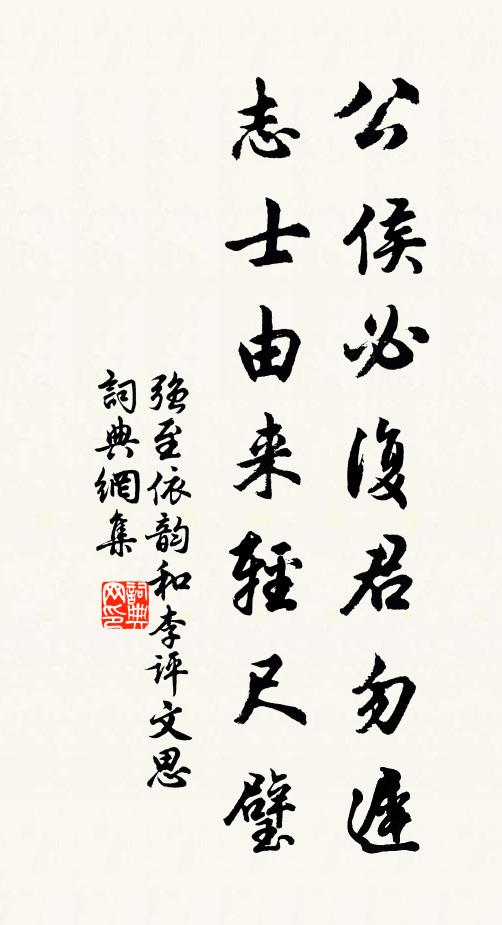 公侯必復君勿遲
志士由来輕尺璧
強至依韵和李評文思
詞典網集
詞典网印